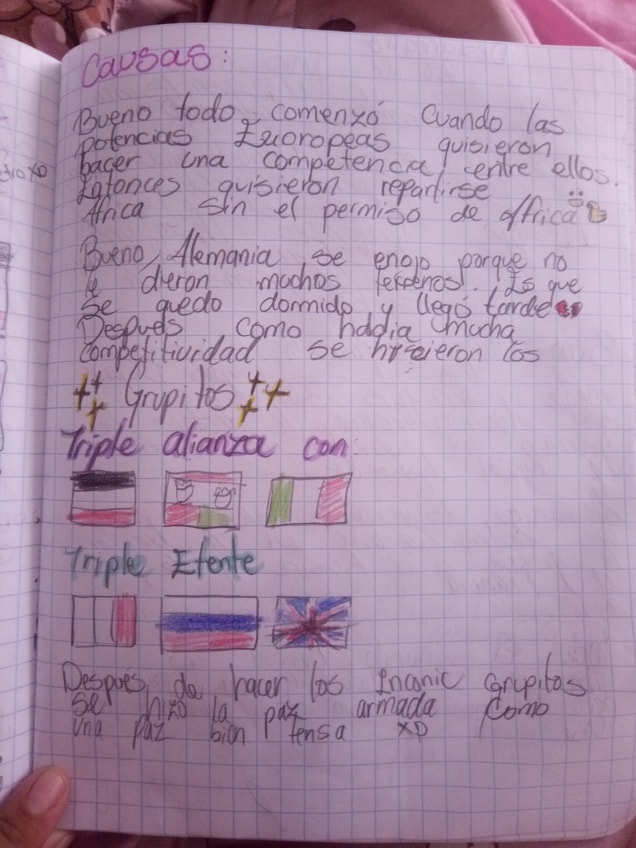 Causas:
Bueno todo comenzó cuando las
potencias Euoropeas quisieron
hacer una competencia entre ellos.
Entonces quisieron repartirse
África sin el permiso de africa
Bueno, Alemania se enojo porque no
le dieron muchos terrenos. Es que
se quedo dormido y llegó tarde
Después como había mucha
competitividad se hicieron los
Grupitos
Triple alianza con:
Triple Etente
Después de hacer los Inconic Grupitos
se hizo la paz armada como
una paz bien tensa XD